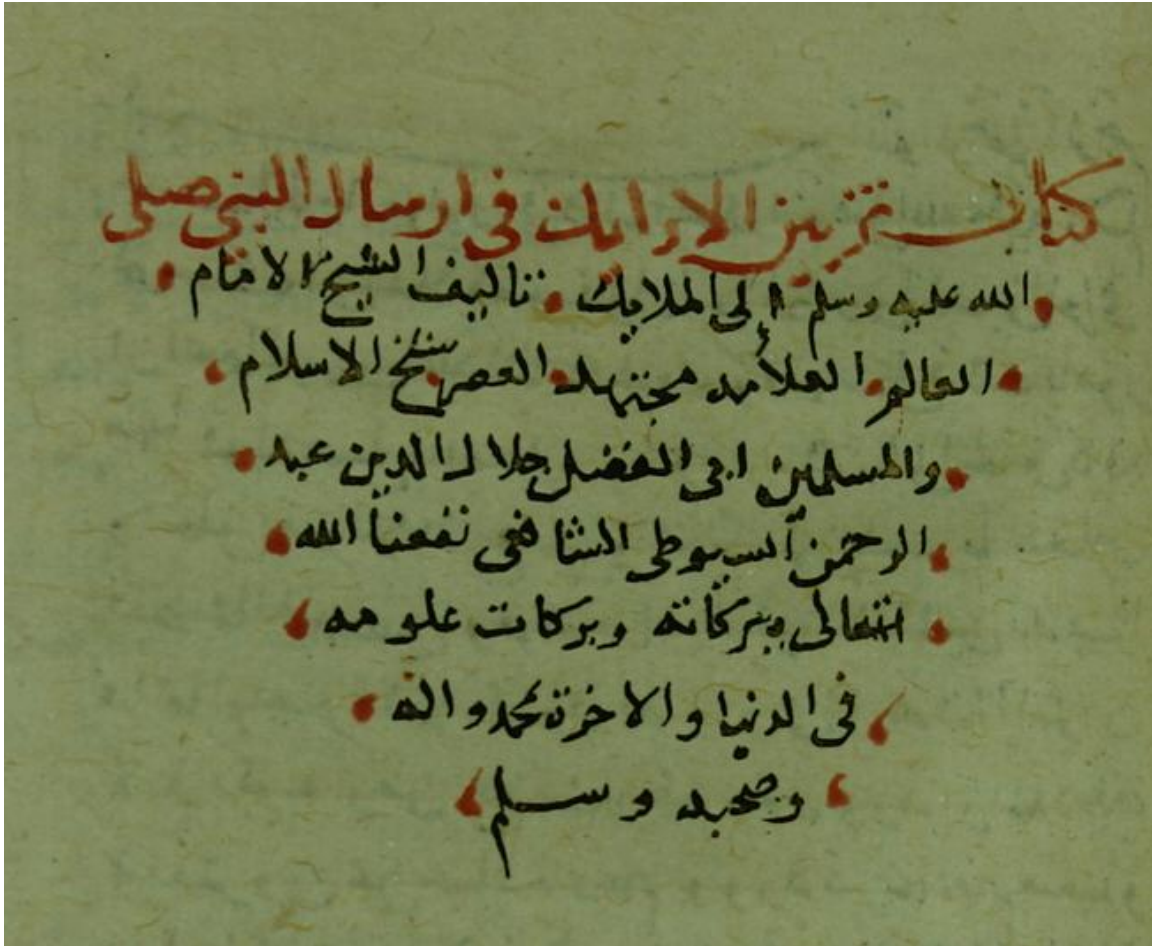 كتاب تزيين الارايك في ارسال النبي صلى
الله عليه وسلم إلى الملايك تاليف الشيخ الامام
العالم العلامه مجتهد العصر شيخ الاسلام
والمسلمين ابى الفضل جلال الدين عبد
الرحمن السيوطى الشافعى نفعنا الله
تعالى ببركاته وبركات علومه
فى الدنيا والاخرة بمحمد واله
وصحبه وسلم